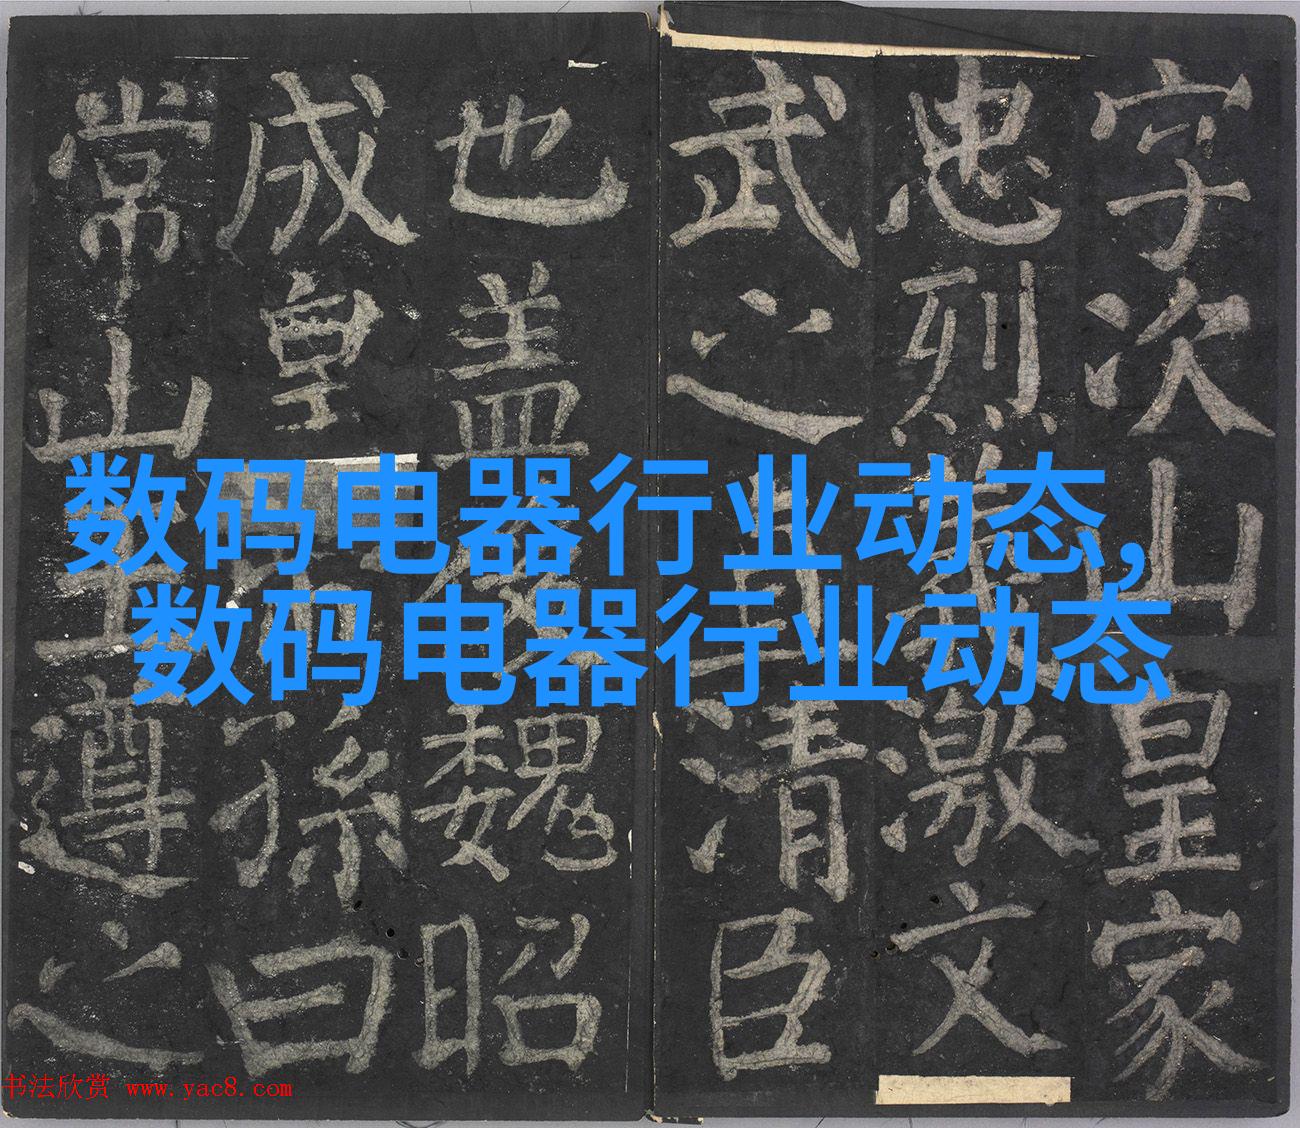 字次山皇家
忠烈義激文
武之直清臣
也盖魏昭
成皇孫曰
常山王遵之
数码电器行业动态,
数码电器行业动态
书法欣赏 www.yac8.com